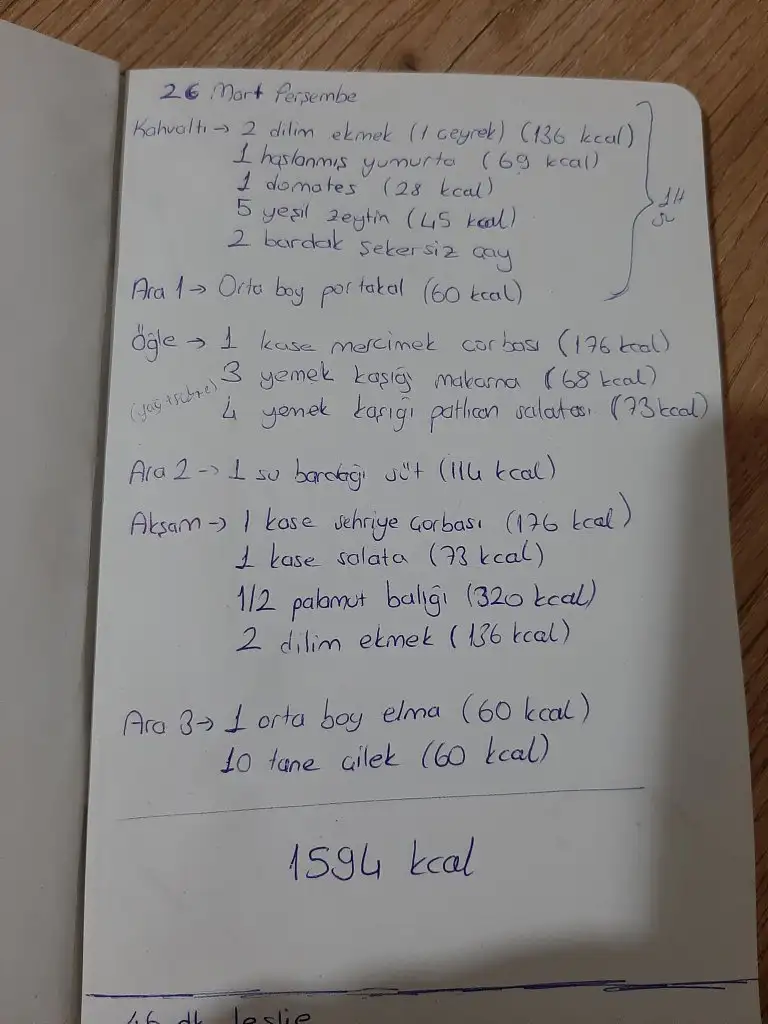 26 Mart Perşembe
Kahvaltı → 2 dilim ekmek (1 çeyrek) (136 kcal)
1 haşlanmış yumurta (69 kcal)
1 domates (28 kcal)
5 yeşil zeytin (45 kcal)
2 bardak şekersiz çay
1 lt
su
Ara 1 → Orta boy portakal (60 kcal)
Öğle → 1 kase mercimek çorbası (176 kcal)
3 yemek kaşığı makarna (68 kcal)
4 yemek kaşığı patlıcan salatası (73 kcal)
Ara 2 → 1 su bardağı süt (114 kcal)
Akşam → 1 kase şehriye çorbası (176 kcal)
1 kase salata (73 kcal)
1/2 palamut balığı (320 kcal)
2 dilim ekmek (136 kcal)
Ara 3 → 1 orta boy elma (60 kcal)
10 tane çilek (60 kcal)
1594 kcal
46 dk leslie